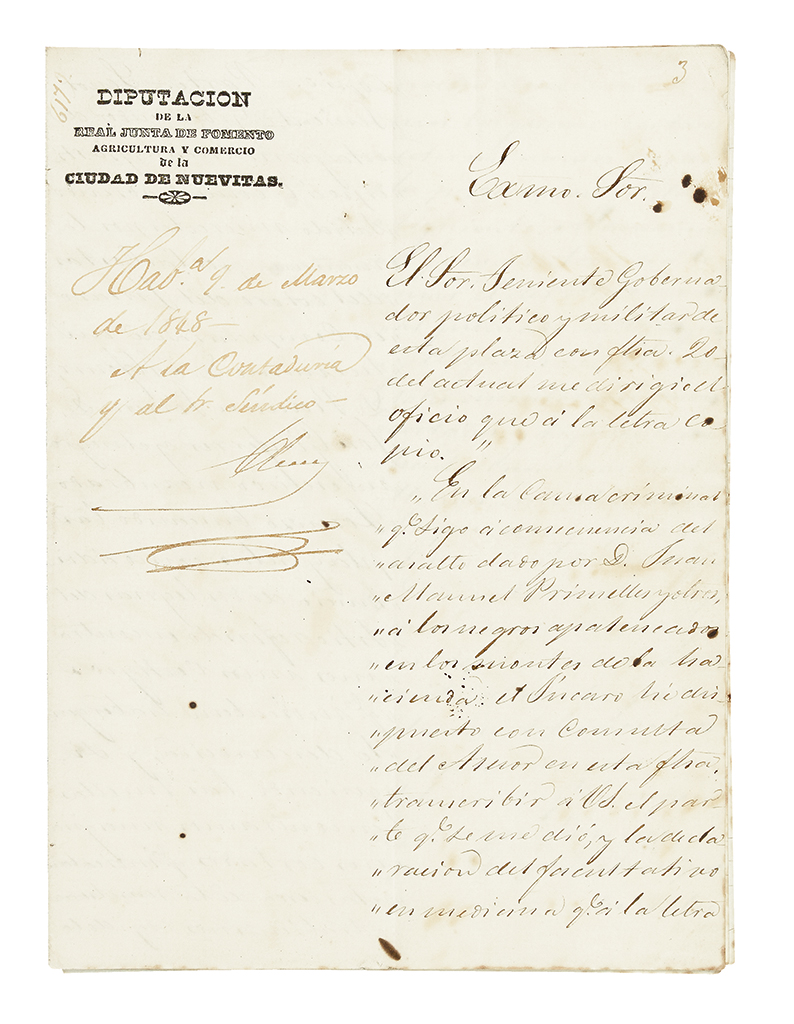 617.
3
DIPUTACION
DE LA
REAL JUNTA DE FOMENTO
AGRICULTURA Y COMERCIO
de la
CIUDAD DE NUEVITAS.
Exmo. Sor.
Hav.ª 9 de Marzo
de 1848—
A la Contaduría
y al Sr. Síndico—
El Sor. Teniente Goberna-
dor politico y militar de
esta plaza con fha. 20
del actual me dirigió el
oficio que á la letra co-
pio. "
„ En la Causa criminal
" q.e sigo á consecuencia del
" asalto dado por D. Juan
" Manuel Primelles y otros,
" á los negros apalencados
" en los montes de la ha-
" cienda el Júcaro hé dis-
" puesto con Consulta
" del Asesor en esta fha.
" transcribir á US. el par-
" te q.e se me dió, y la decla-
" racion del facultativo
" en medicina q.e á la letra